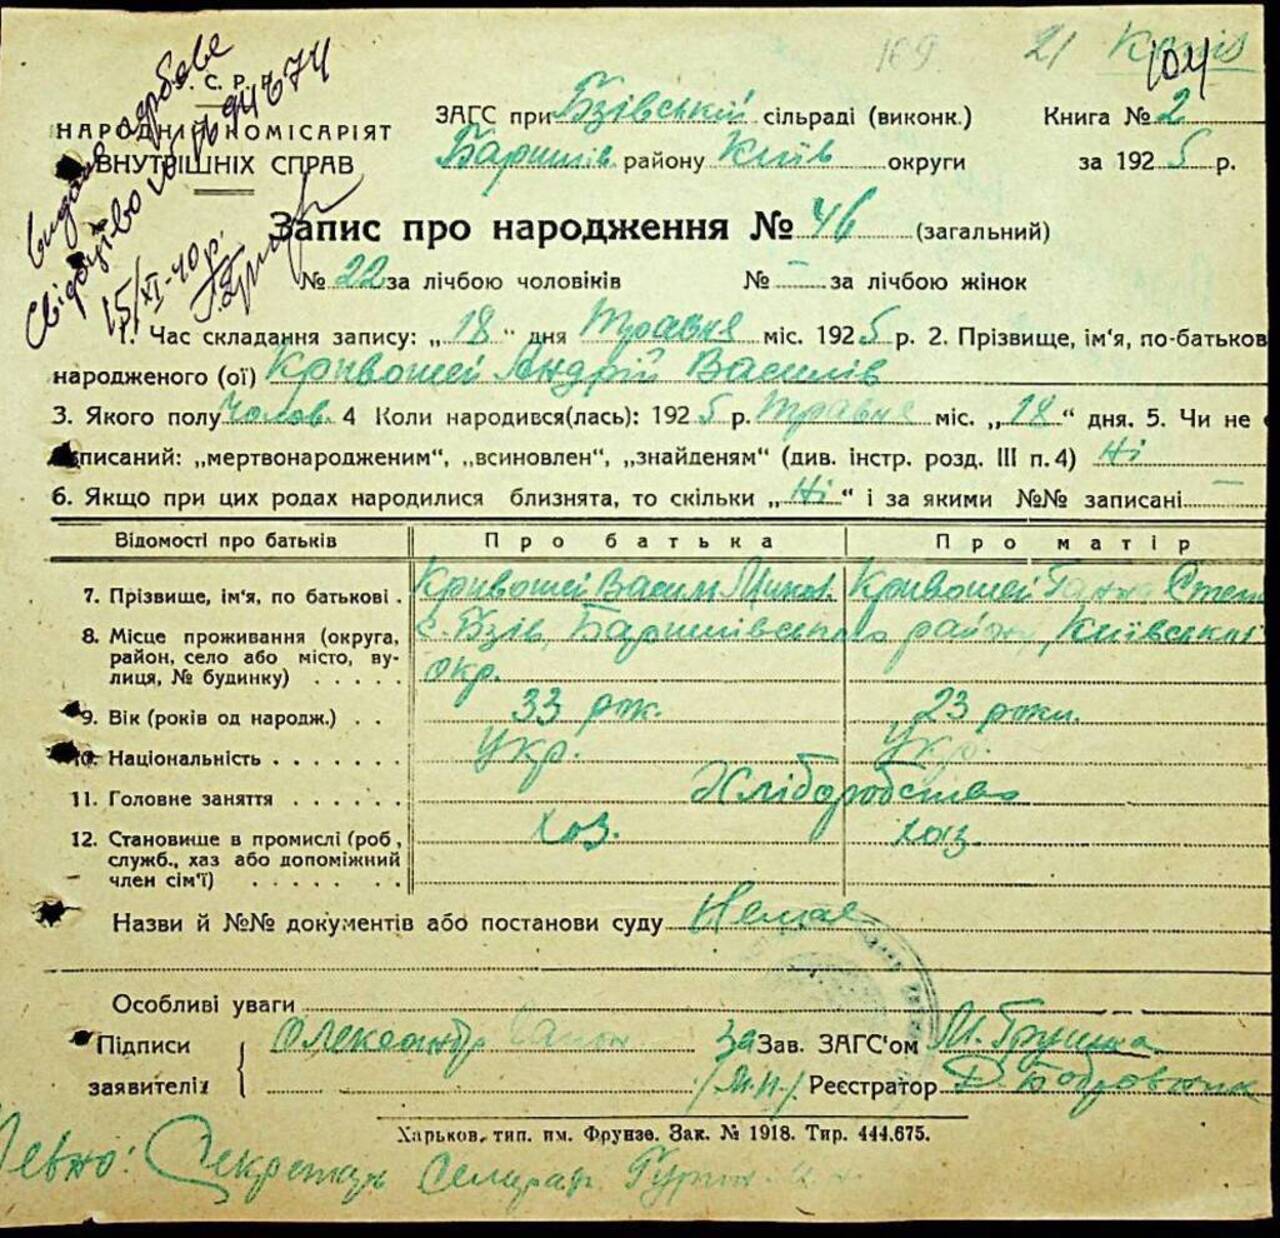 169 21 104
. С. Р.
НАРОДНІЙ КОМІСАРІЯТ
ВНУТРІШНІХ СПРАВ
видано
Свідоцтво
15/XI-40р.
ЗАГС при Бзівській сільраді (виконк.) Книга № 2
Баришів. району Київ округи за 1925 р.
Запис про народження № 46 (загальний)
№ 22 за лічбою чоловіків № – за лічбою жінок
1. Час складання запису: „18" дня Травня міс. 1925 р. 2. Прізвище, ім'я, по-батьков
народженого (ої) Кривошей Андрій Василів
3. Якого полу Чолов. 4 Коли народився(лась): 1925 р. Травня міс. „18" дня. 5. Чи не
писаний: „мертвонародженим", „всиновлен", „знайденям" (див. інстр. розд. III п. 4) Ні
6. Якщо при цих родах народилися близнята, то скільки „Ні" і за якими №№ записані –
Відомості про батьків Про батька Про матір
7. Прізвище, ім'я, по батькові . Кривошей Васил Миков. Кривошей Ганна Степ
8. Місце проживання (округа, район, село або місто, вулиця, № будинку) с. Бзів, Баришівського району, Київської
окр.
9. Вік (років од народж.) . . 33 рок. 23 роки.
10. Національність . . . . . . . Укр. Укр.
11. Головне заняття . . . . . . Хліборобство
12. Становище в промислі (роб, служб., хаз або допоміжний член сім'ї) . . . . . . Хоз. хаз.
Назви й №№ документів або постанови суду Немає
Особливі уваги
Підписи Олександр За Зав. ЗАГС'ом М. Грушка
заявителів /М.П./ Реєстратор Д. Бобровник
Харьков, тип. им. Фрунзе. Зак. № 1918. Тир. 444.675.
евно: Секретар Сельрад